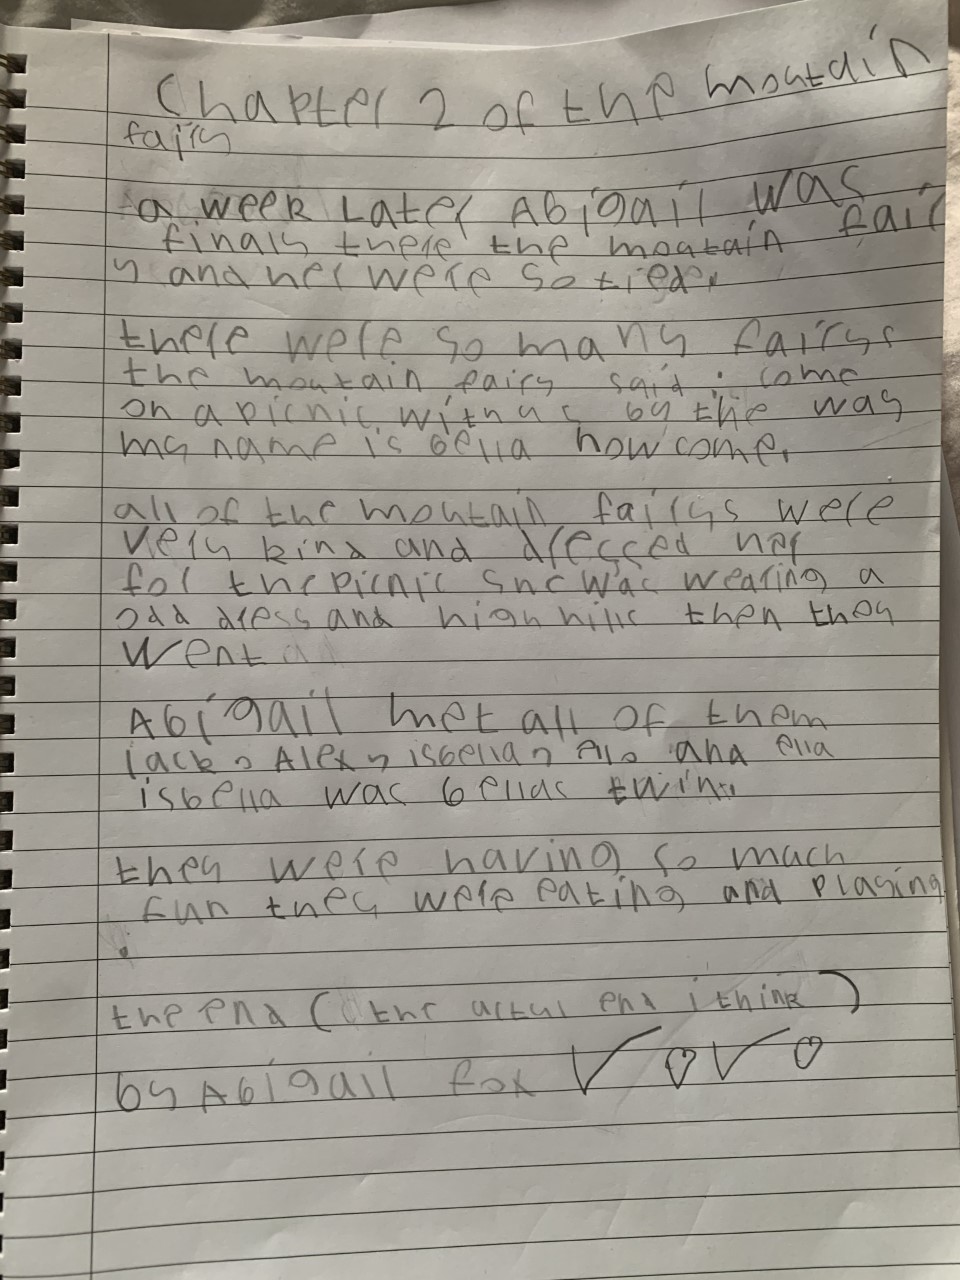 Chapter 2 of the moutain
fairy
a week Later Abigail was
finaly there the moutain fair
y and her were so tired.
there were so many fairys
the moutain fairy said : come
on a picnic with us by the way
my name is bella now come.
all of the moutain fairys were
very kind and dressed her
for the picnic she was wearing a
odd dress and high hills then they
went
Abigail met all of them
jack , Alex , isbella , and ella
isbella was bellas twin.
they were having so much
fun they were eating and playing
.
the end ( the actul end i think )
by Abigail fox